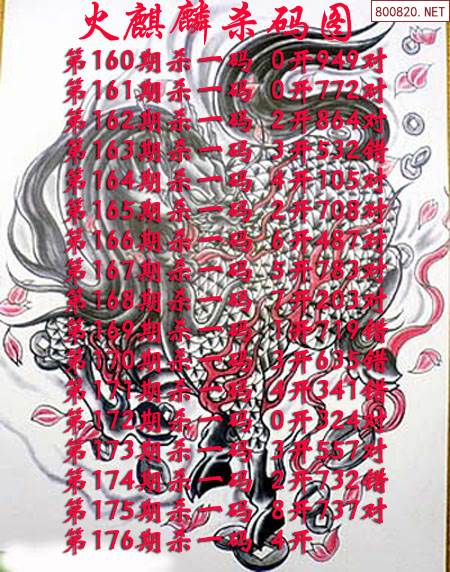 800820.NET
火麒麟杀码图
第160期杀一码 0开949对
第161期杀一码 0开772对
第162期杀一码 2开864对
第163期杀一码 3开532错
第164期杀一码 4开105对
第165期杀一码 2开708对
第166期杀一码 6开487对
第167期杀一码 5开783对
第168期杀一码 7开203对
第169期杀一码 1开719错
第170期杀一码 3开635错
第171期杀一码 4开341错
第172期杀一码 0开324对
第173期杀一码 3开557对
第174期杀一码 2开732错
第175期杀一码 8开737对
第176期杀一码 4开